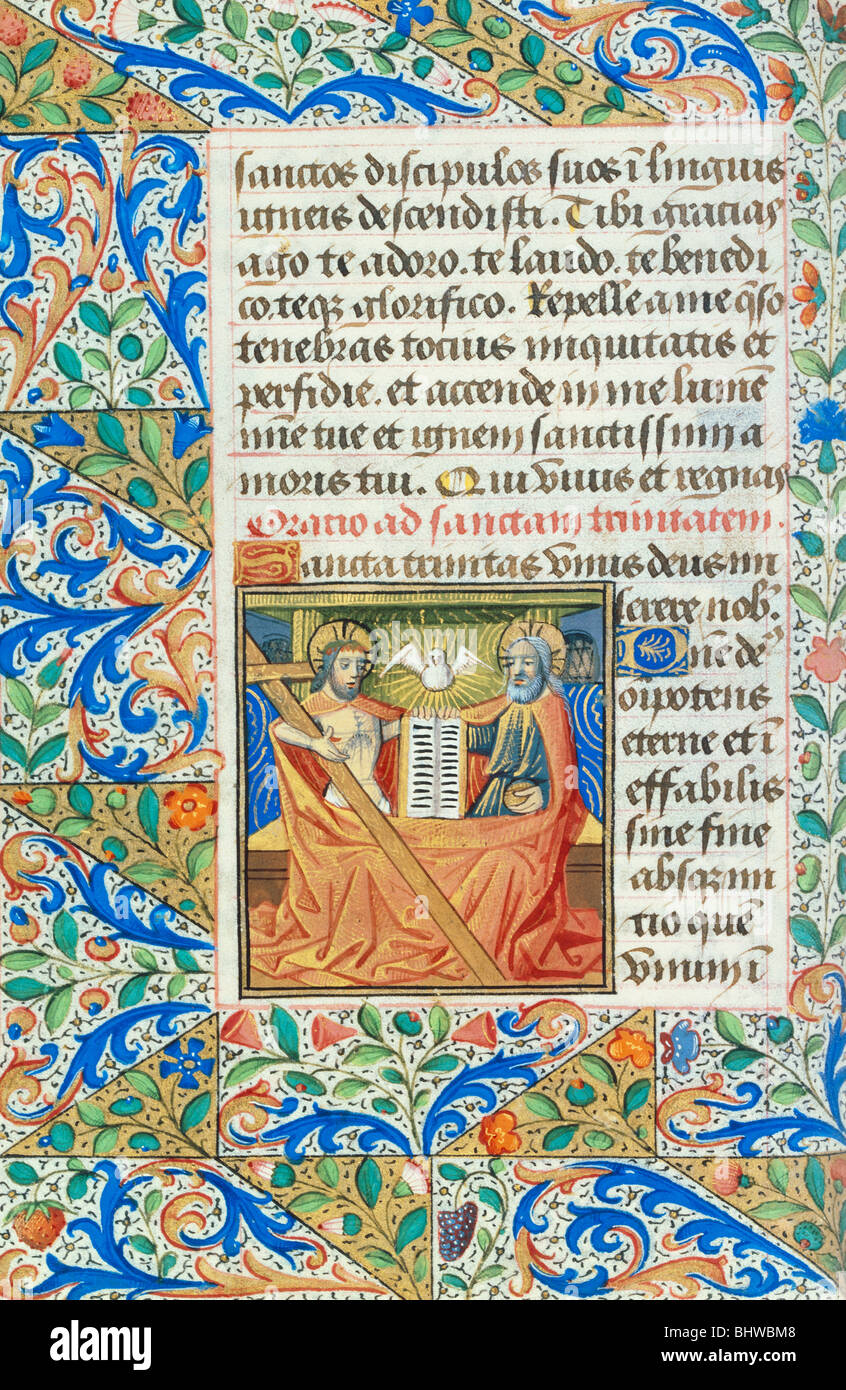 sanctos discipulos suos ī linguis
igneis descendisti. Tibi gracias
ago te adoro. te laudo. te benedi
co. teqz glorifico. Repelle a me qso
tenebras tocius iniquitatis et
perfidie. et accende in me lumē
mie tue et ignem sanctissimi a
moris tui. Qui vivis et regnas
Oratio ad sanctam trinitatem.
Sancta trinitas vnus deus mi
serere nob.
Dne de
oipotens
eterne et ī
effabilis
sine fine
abs qz ini
tio quē
vnum ī
alamy
Image ID: BHWBM8
www.alamy.com